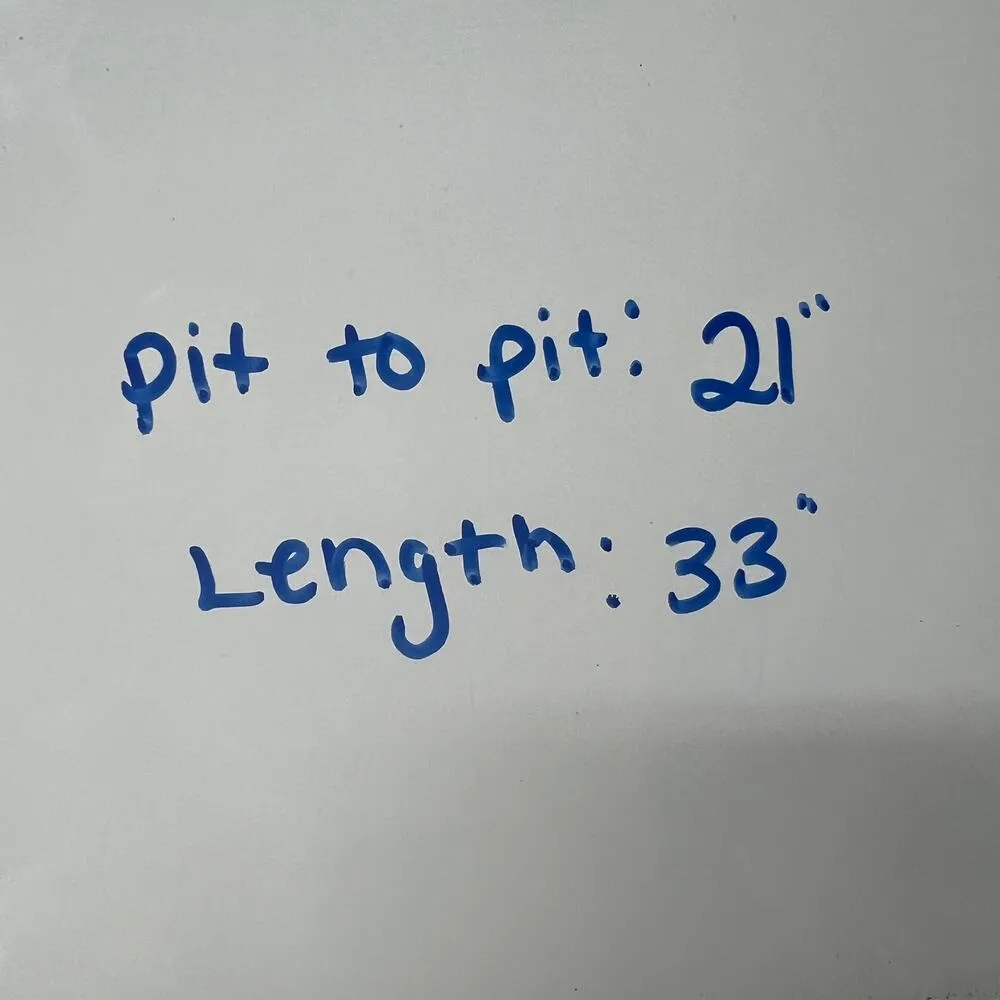 pit to pit: 21"
Length: 33"